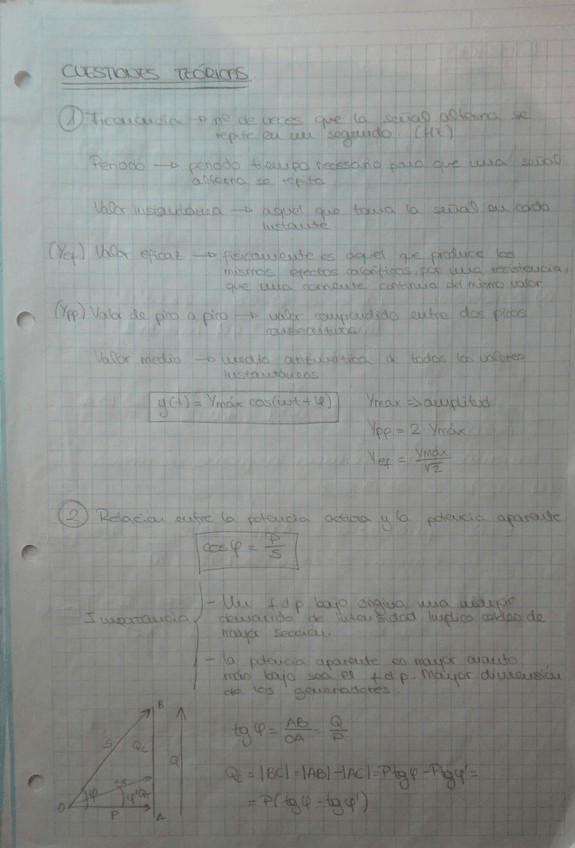 CUESTIONES TEÓRICAS
① Frecuencia → nº de veces que la señal alterna se
repite en un segundo. (Hz)
Periodo → periodo tiempo necesario para que una señal
alterna se repita
Valor instantáneo → aquel que toma la señal en cada
instante.
(Yef) Valor eficaz → físicamente es aquel que produce los
mismos efectos caloríficos, por una resistencia,
que una corriente continua del mismo valor.
(Ypp) Valor de pico a pico → valor comprendido entre dos picos
consecutivos.
Valor medio → media aritmética de todos los valores
instantáneos
y(t) = Ymáx cos(wt + φ)
Ymax => amplitud
Ypp = 2 · Ymáx
Yef = Ymáx/√2
② Relación entre la potencia activa y la potencia aparente
cos φ = P/S
Importancia
- Un f.d.p bajo origina una mayor
demanda de intensidad implica cables de
mayor sección.
- la potencia aparente es mayor cuanto
más bajo sea el f.d.p. Mayor dimensión
de los generadores
tg φ = AB/OA = Q/P
Qc = |BC| = |AB| - |AC| = P tg φ - P tg φ' =
= P(tg φ - tg φ')
B
S
Qc
Q
φ
φ'
O
P
A